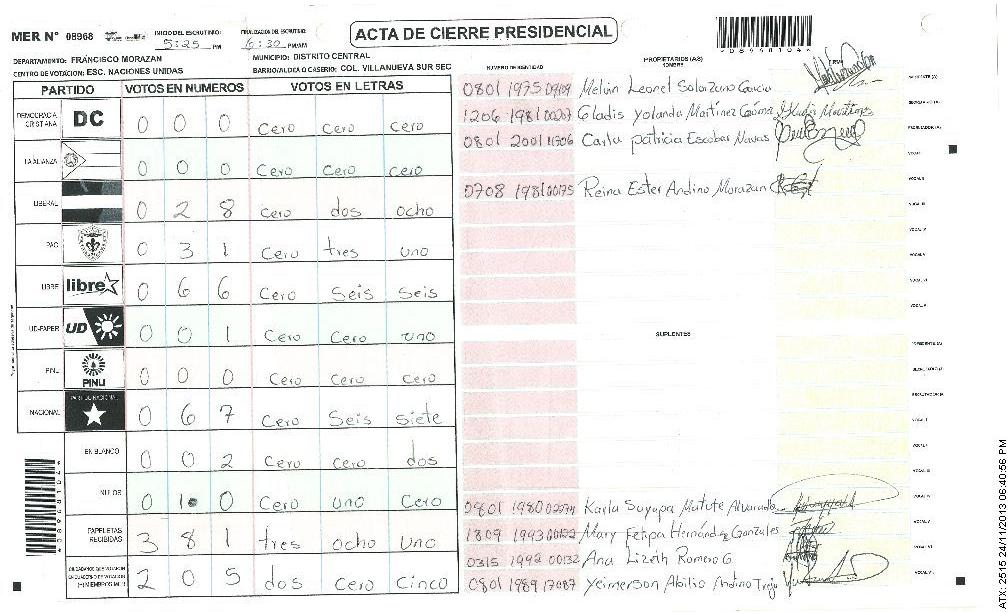 MER N° 08968
INICIO DEL ESCRUTINIO:
5:25 PM
FINALIZACION DEL ESCRUTINIO:
6:30 PM/AM
ACTA DE CIERRE PRESIDENCIAL
DEPARTAMENTO: FRANCISCO MORAZAN
MUNICIPIO: DISTRITO CENTRAL
CENTRO DE VOTACION: ESC. NACIONES UNIDAS
BARRIO/ALDEA O CASERIO: COL. VILLANUEVA SUR SEC
PARTIDO VOTOS EN NUMEROS VOTOS EN LETRAS
DEMOCRACIA CRISTIANA DC 0 0 0 Cero Cero Cero
LA ALIANZA 0 0 0 Cero Cero Cero
LIBERAL 0 2 8 Cero dos ocho
PAC 0 3 1 Cero tres uno
LIBRE libre 0 6 6 Cero Seis Seis
UD-FAPER UD 0 0 1 Cero Cero uno
PINU PINU 0 0 0 Cero Cero Cero
NACIONAL PARTIDO NACIONAL 0 6 7 Cero Seis siete
EN BLANCO 0 0 2 Cero Cero dos
NULOS 0 1 0 Cero uno Cero
PAPELETAS RECIBIDAS 3 8 1 tres ocho uno
2 0 5 dos Cero Cinco
NUMERO DE IDENTIDAD
PROPIETARIOS (AS)
NOMBRE
FIRMA
0801 1975 Melvin Leonel Solorzano Garcia
1206 1981 00207 Gladis Yolanda Martinez
0801 2001 11706 Carla patricia Escobar Navas
0708 1981 00175 Reina Ester Andino Morazan
SUPLENTES
0801 1980 Karla Suyapa Matute Alvarado
1809 1993 00122 Mary Felipa Hernández Gonzales
0315 1992 00132 Ana Lizeth Romero G
0801 1989 17087 Yeimerson Abilio Andino Trejo
ATX 2515 24/11/2013 06:40:56 PM